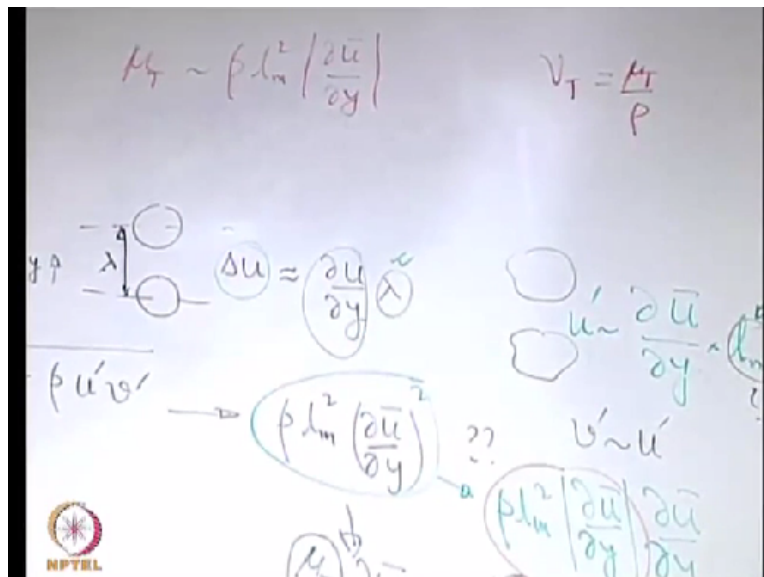 μ_T ~ ρ l_m² |∂ū/∂y|
ν_T = μ_T/ρ
y↑ λ Δu ≈ ∂u/∂y λ
u' ~ ∂ū/∂y · l_m
- ρ u'v' → ρ l_m² (∂ū/∂y)² ??
v' ~ u'
ρ l_m² |∂ū/∂y| ∂ū/∂y
NPTEL